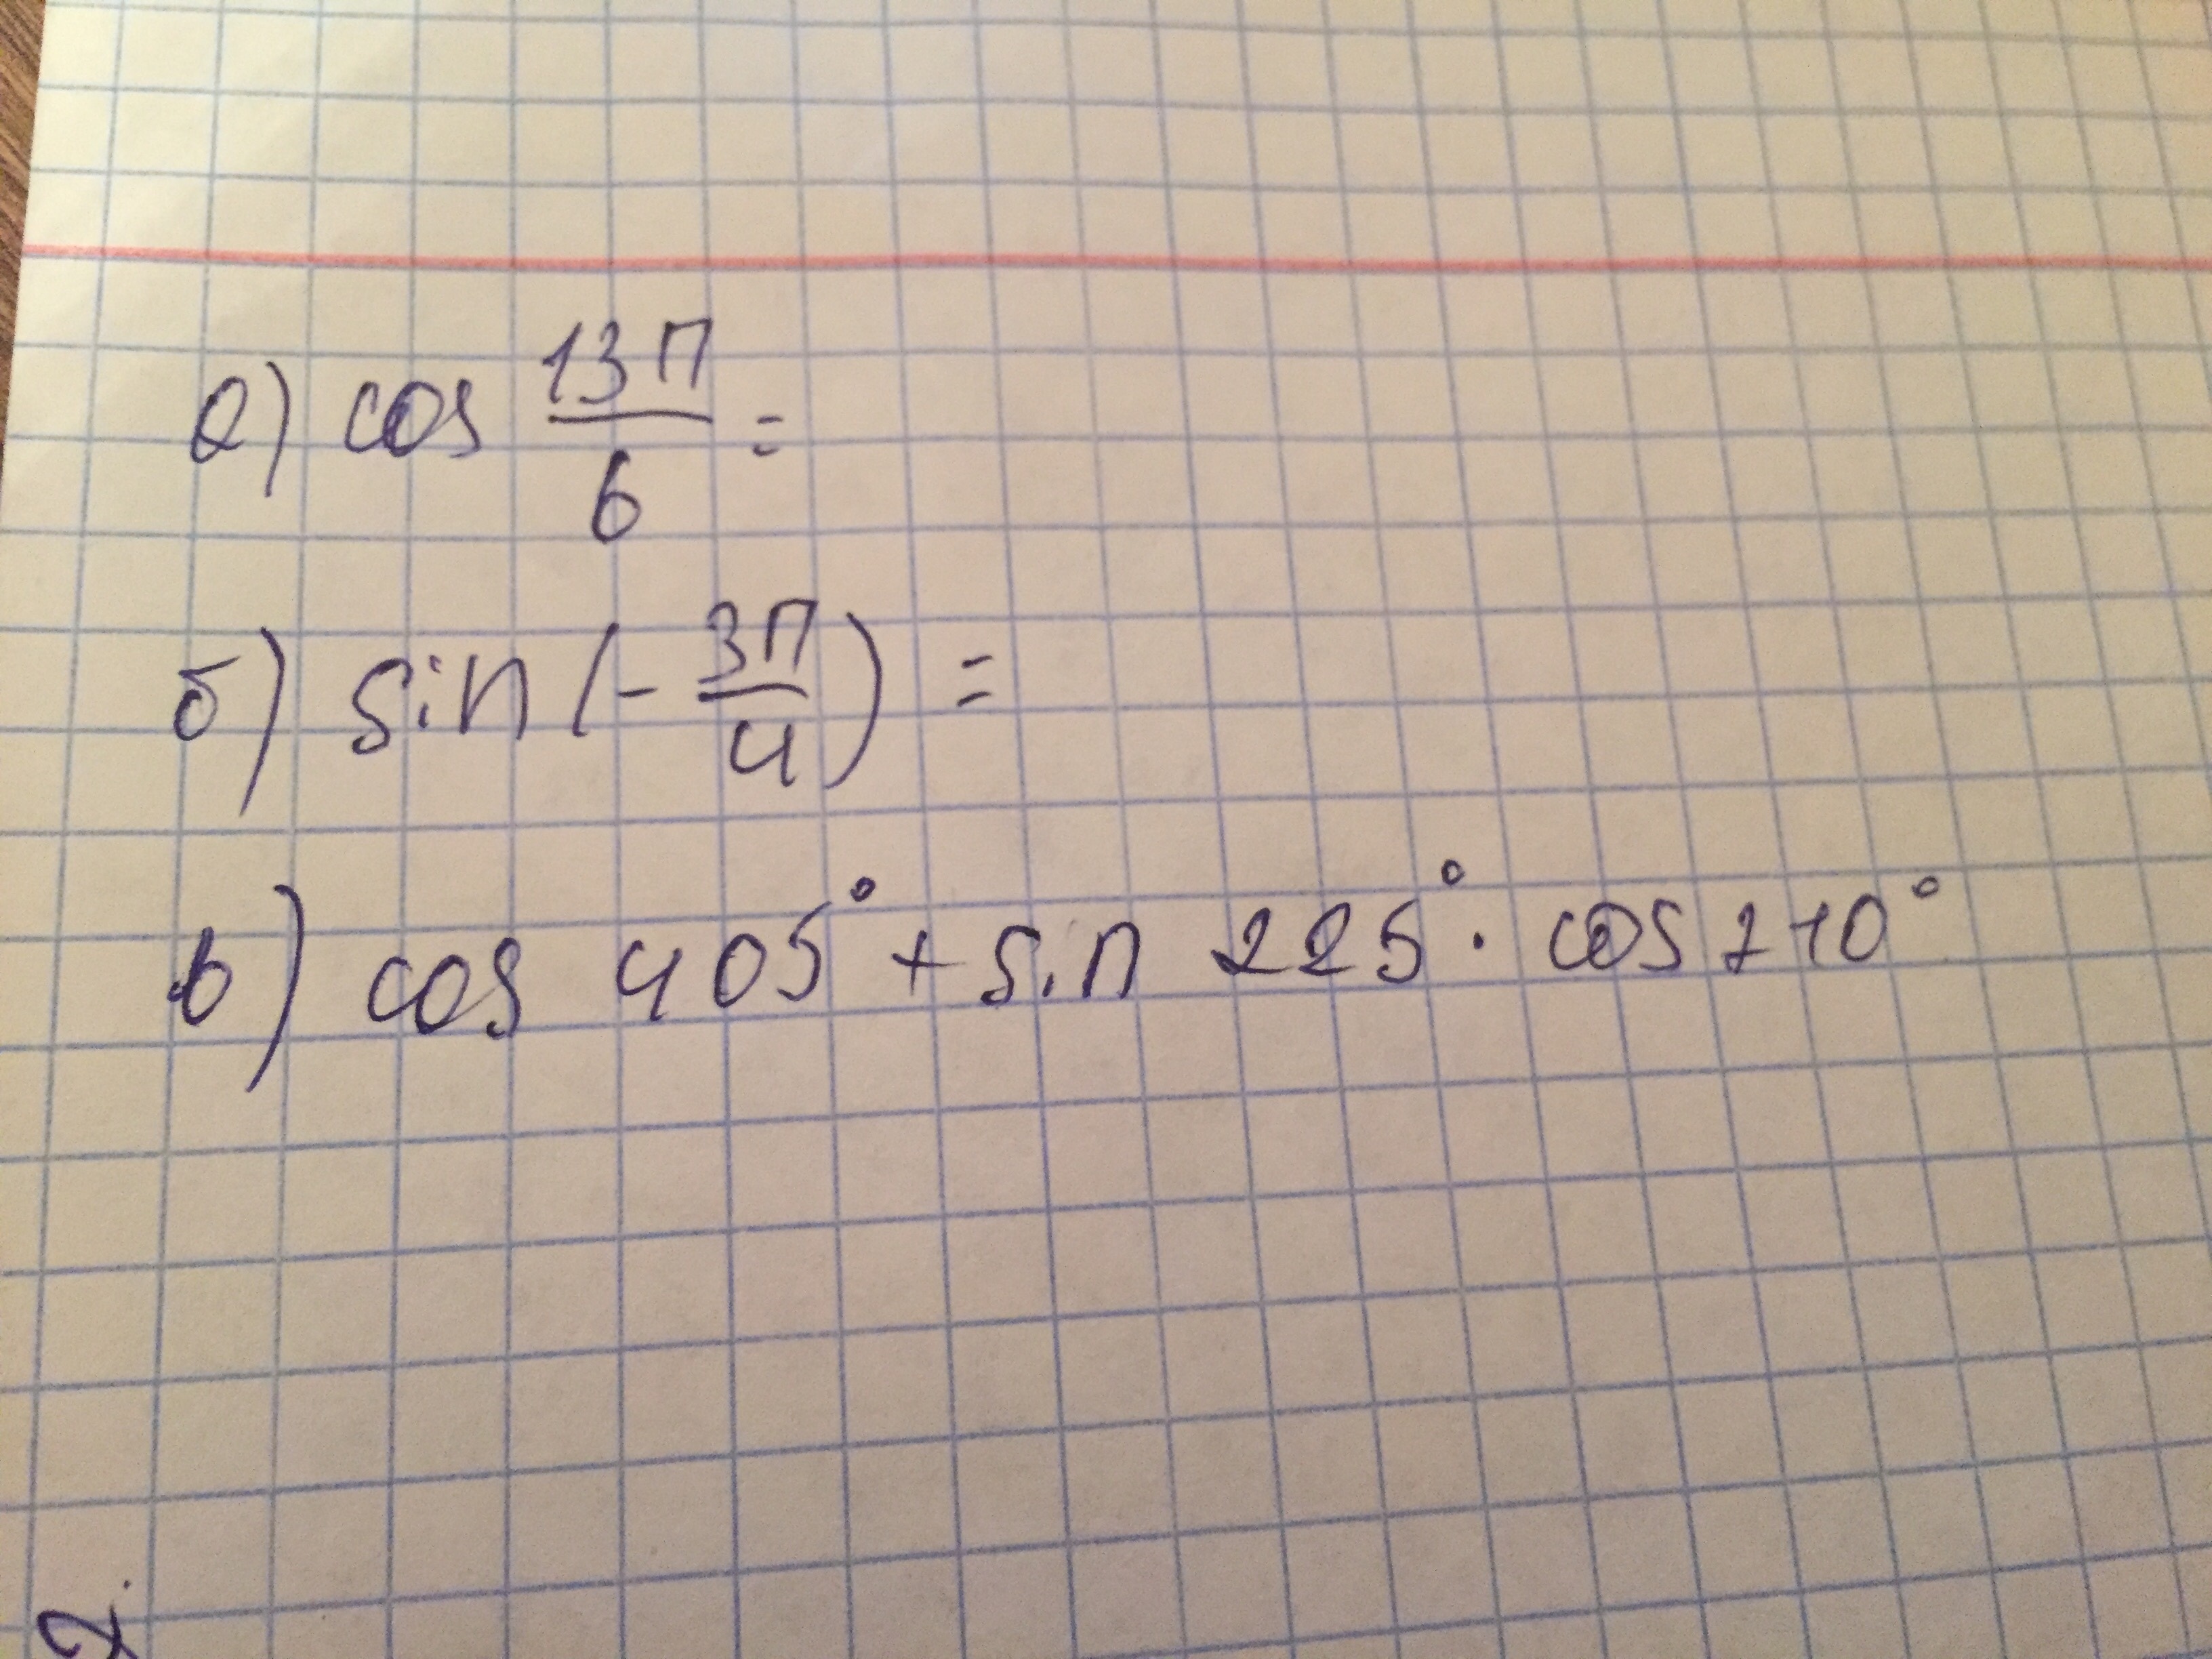 а) cos 13π/6 =
б) sin (- 3π/4) =
в) cos 405° + sin 225° · cos 210°